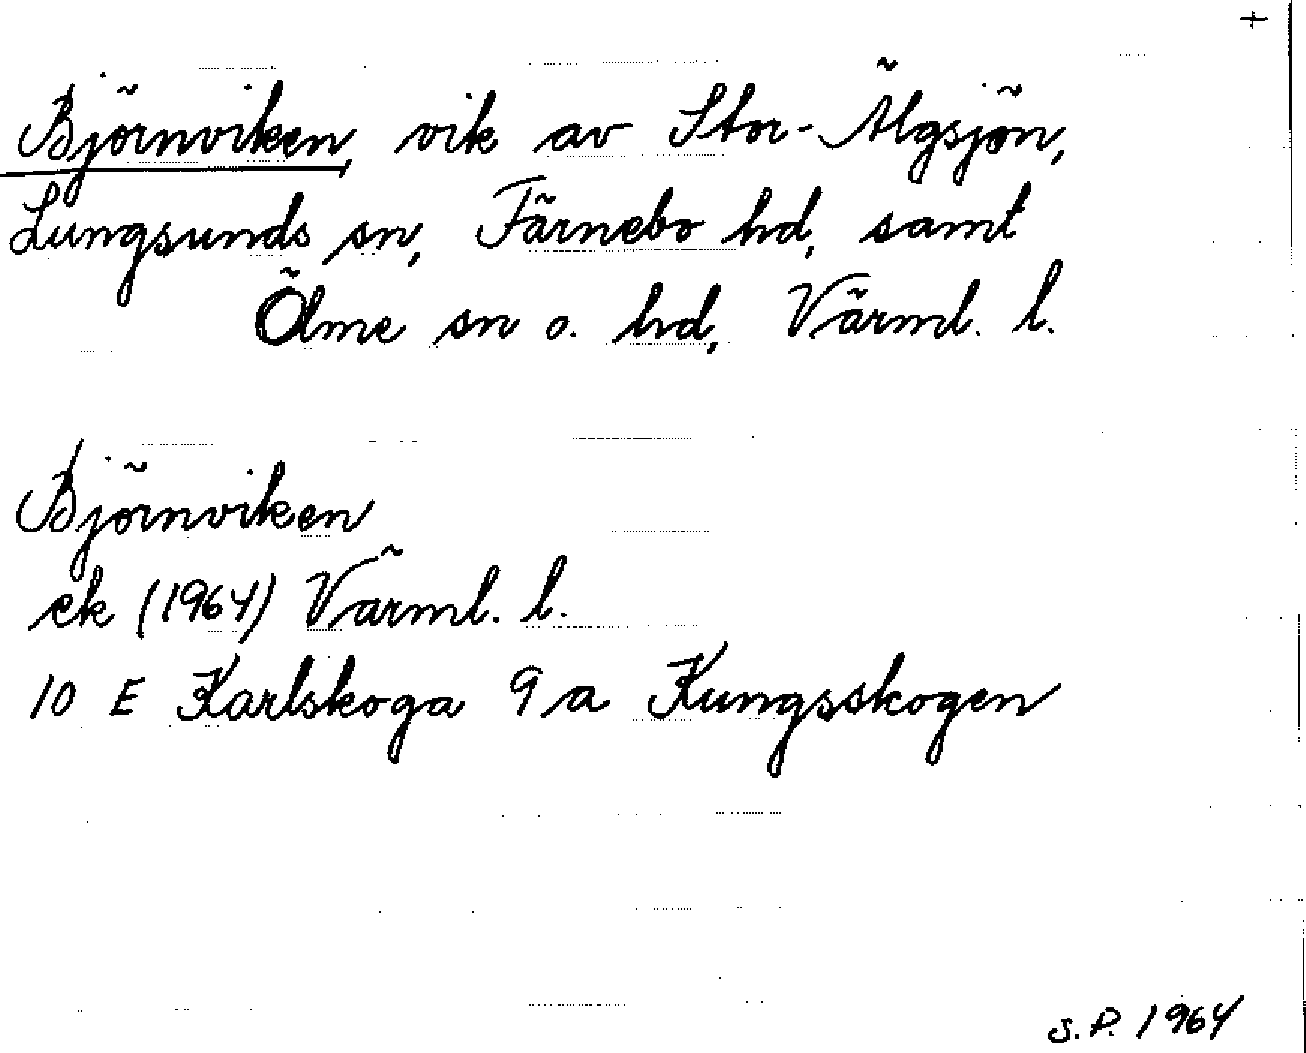 Björnviken, vik av Stor-Älgsjön,
Lungsunds sn, Färnebo hd, samt
Ölme sn o. hd, Värml. l.
Björnviken
ek (1964) Värml. l.
10 E Karlskoga 9 a Kungsskogen
S.P. 1964